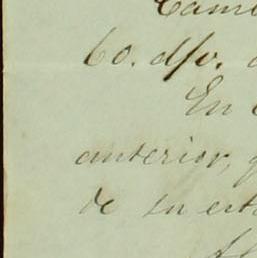 Cam
60. d/v.
En
anterior,
de su est